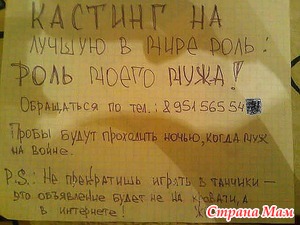 КАСТИНГ НА
ЛУЧШУЮ В МИРЕ РОЛЬ:
РОЛЬ МОЕГО МУЖА!
Обращаться по тел.: 8 951 565 54
Пробы будут проходить ночью, когда муж
на войне.
P.S.: Не прекратишь играть в танчики –
это объявление будет не на кровати, а
в интернете!
Страна Мам